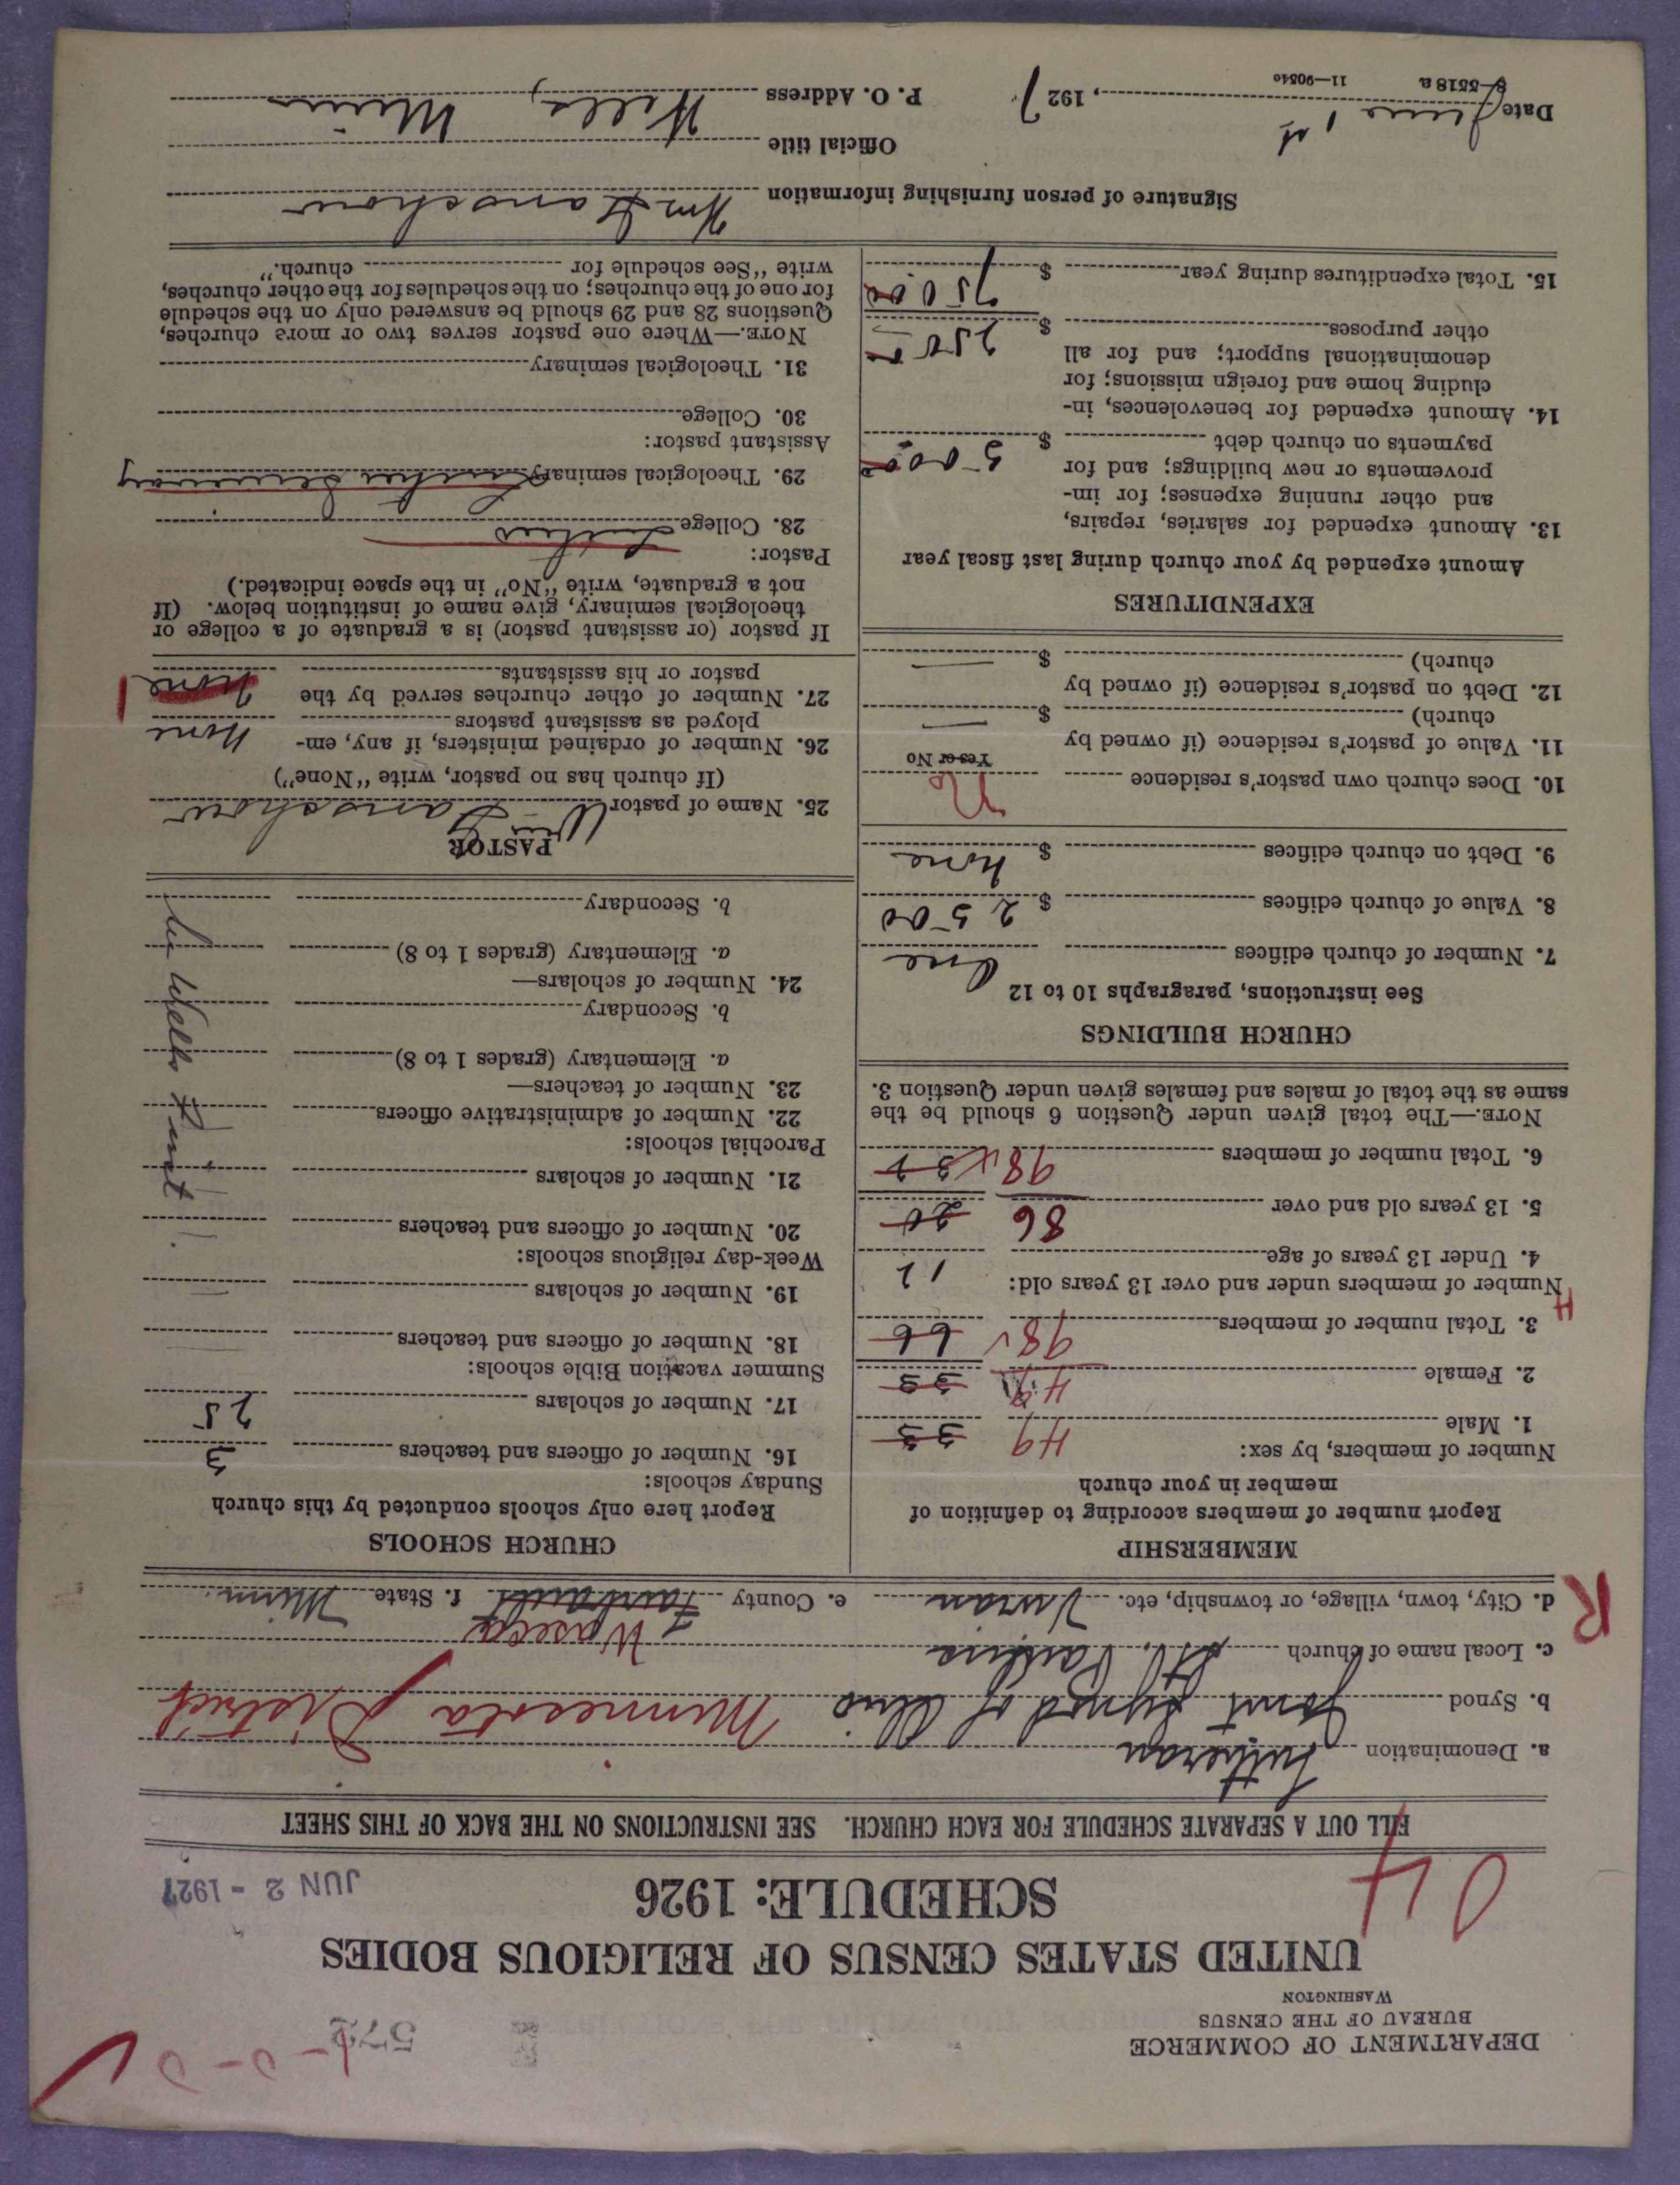 DEPARTMENT OF COMMERCE
BUREAU OF THE CENSUS
WASHINGTON
UNITED STATES CENSUS OF RELIGIOUS BODIES
SCHEDULE: 1926
JUN 2 - 1927
FILL OUT A SEPARATE SCHEDULE FOR EACH CHURCH. SEE INSTRUCTIONS ON THE BACK OF THIS SHEET
a. Denomination Lutheran
b. Synod Joint Synod of Ohio Minnesota District
c. Local name of church St. Paulus
Waseca
d. City, town, village, or township, etc. Vivian e. County Faribault f. State Minn.
R
MEMBERSHIP
Report number of members according to definition of
member in your church
Number of members, by sex:
1. Male 49 33
2. Female 49 33
3. Total number of members 98 66
Number of members under and over 13 years old:
4. Under 13 years of age 12
5. 13 years old and over 86 20
6. Total number of members 98 32
NOTE.—The total given under Question 6 should be the
same as the total of males and females given under Question 3.
CHURCH BUILDINGS
See instructions, paragraphs 10 to 12
7. Number of church edifices One
8. Value of church edifices $ 2500
9. Debt on church edifices $ none
10. Does church own pastor's residence No
Yes or No
11. Value of pastor's residence (if owned by
church) $ —
12. Debt on pastor's residence (if owned by
church) $ —
EXPENDITURES
Amount expended by your church during last fiscal year
13. Amount expended for salaries, repairs,
and other running expenses; for im-
provements or new buildings; and for
payments on church debt $ 500.00
14. Amount expended for benevolences, in-
cluding home and foreign missions; for
denominational support; and for all
other purposes $ 250
15. Total expenditures during year $ 750.00
CHURCH SCHOOLS
Report here only schools conducted by this church
Sunday schools:
16. Number of officers and teachers 3
17. Number of scholars 25
Summer vacation Bible schools:
18. Number of officers and teachers —
19. Number of scholars —
Week-day religious schools:
20. Number of officers and teachers —
21. Number of scholars —
Parochial schools:
22. Number of administrative officers
23. Number of teachers—
a. Elementary (grades 1 to 8)
b. Secondary
24. Number of scholars—
a. Elementary (grades 1 to 8)
b. Secondary
PASTOR
25. Name of pastor Wm
(If church has no pastor, write "None")
26. Number of ordained ministers, if any, em-
ployed as assistant pastors None
27. Number of other churches served by the
pastor or his assistants None 1
If pastor (or assistant pastor) is a graduate of a college or
theological seminary, give name of institution below. (If
not a graduate, write "No" in the space indicated.)
Pastor:
28. College Luther
29. Theological seminary Luther Seminary
Assistant pastor:
30. College
31. Theological seminary
NOTE.—Where one pastor serves two or more churches,
Questions 28 and 29 should be answered only on the schedule
for one of the churches; on the schedules for the other churches,
write "See schedule for church."
Signature of person furnishing information Wm
Official title
Date June 1st, 1927 P. O. Address Wells, Minn
8-5518a 11-9054o